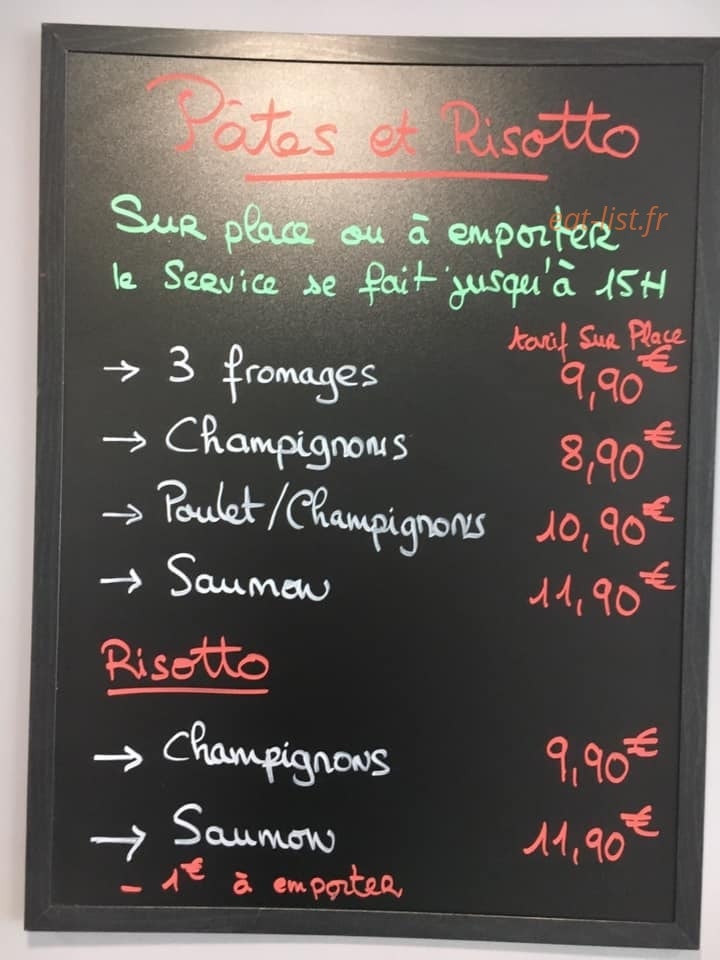 Pâtes et Risotto
Sur place ou à emporter
eat-list.fr
le Service se fait jusqu'à 15H
tarif Sur Place
→ 3 fromages 9,90€
→ Champignons 8,90€
→ Poulet/Champignons 10,90€
→ Saumon 11,90€
Risotto
→ Champignons 9,90€
→ Saumon 11,90€
- 1€ à emporter